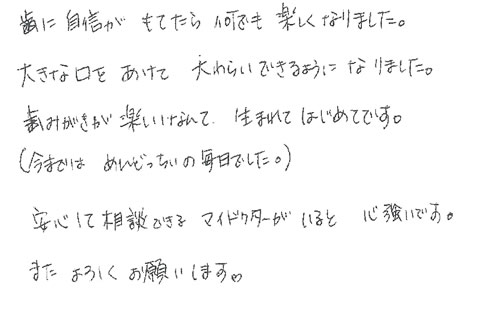 歯に自信がもてたら何でも楽しくなりました。
大きな口をあけて大わらいできるようになりました。
歯みがきが楽しいなんて、生まれてはじめてです。
(今までは めんどっちいの毎日でした。)
安心して相談できるマイドクターがいると心強いです。
またよろしくお願いします♡